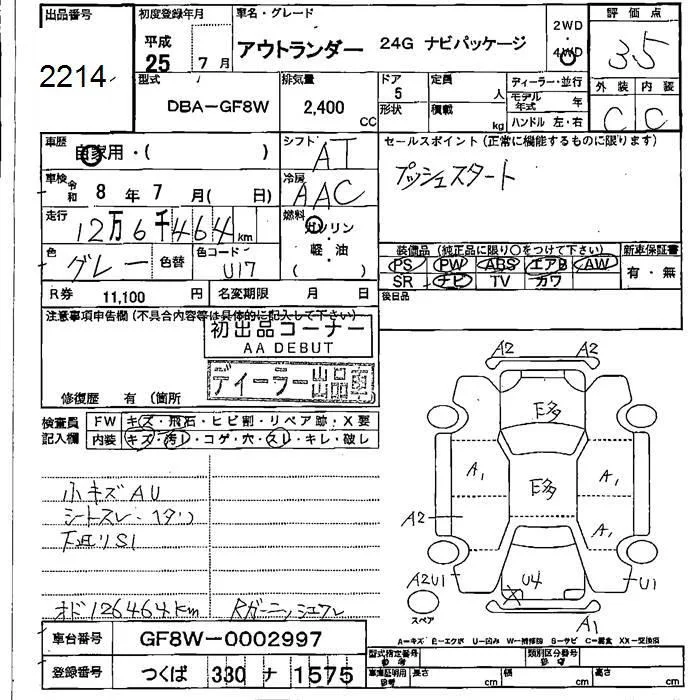 出品番号
2214
初度登録年月
平成
25 7月
車名・グレード
アウトランダー 24G ナビパッケージ
2WD
4WD
評価点
3.5
型式
DBA-GF8W
排気量
2,400
CC
ドア
5
形状
定員
人
積載
kg
ディーラー・並行
モデル年式 年
ハンドル 左・右
外装 内装
C C
車歴
自家用・( )
シフト
AT
セールスポイント (正常に機能するものに限ります)
プッシュスタート
車検 令和 8年 7月( 日)
冷房
AAC
走行
12万6千464km
燃料
ガソリン
軽油
( )
色
グレー
色替
色コード
U17
装備品 (純正品に限り○をつけて下さい)
新車保証書
PS PW ABS エアB AW
SR ナビ TV カワ
有・無
R券 11,100 円
名変期限 月 日
後日品
注意事項申告欄 (不具合内容等は具体的に記入して下さい)
初出品コーナー
AA DEBUT
ディーラー出品車
修復歴 有 (箇所
検査員記入欄
FW キズ・飛石・ヒビ割・リペア跡・X要
内装 キズ・汚レ・コゲ・穴・スレ・キレ・破レ
小キズAU
シートスレ・ヘタリ
下廻りS1
オド126464km
A2 A2
E多
A1
E多
A1
A2
A1
A2U1
U4
X
U1
A1
スペア
A-キズ E-エクボ U-凹み W-補修跡 S-サビ C-腐食 XX-交換済
車台番号 GF8W-0002997
登録番号 つくば 330 ナ 1575
型式指定番号
参考
類別区分番号
参考
車庫証明用
参考
長さ cm
幅 cm
高さ cm